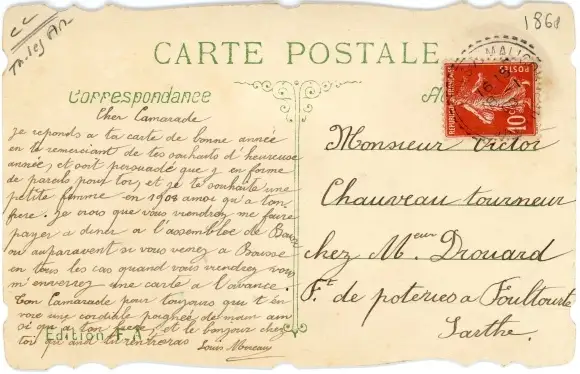 CC
1861
CARTE POSTALE
Correspondance
MALICO
POSTES
REPUBLIQUE FRANÇAISE
10
Cher Camarade
je reponds a ta carte de bonne année
en te remerciant de tes souhaits d'heureuse
année, et soit persuadé que j'en forme
de pareils pour toi, et je te souhaite une
petite femme en 1908 amoi qu'a ton
frere. Je crois que vous viendrez me faire
payer a diner a l'assemblée de
ou auparavent si vous venez a Bousse
en tous les cas quand vous viendrez vous
m'enverrez une carte à l'avance.
Ton Camarade pour toujours qui t'en
voie une cordiale poignée de main ain
si qu'a ton frere, et le bonjour chez
toi quand tu rentreras
Louis Moreau
Edition F.A
Monsieur Victor
Chauveau tourneur
chez Mr Drouard
Ft de poteries a Foultourte
Sarthe.